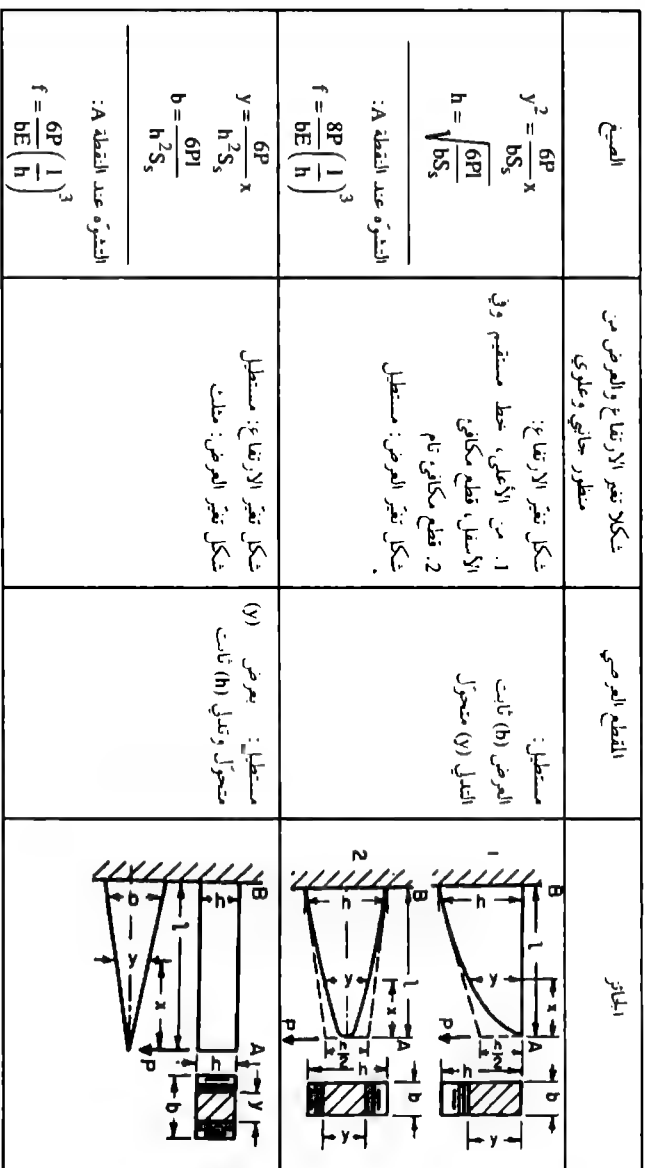 الجائز
المقطع العرضي
شكلا تغير الارتفاع والعرض من
منظور جانبي وعلوي
الصيغ
1
B
A
l
x
h
y
h/2
P
h
b
y
2
B
A
l
x
h
y
h/2
P
h
b
y
مستطيل:
العرض (b) ثابت
التدلي (y) متحوّل
شكل تغيّر الارتفاع:
1. من الأعلى، خط مستقيم وفي
الأسفل، قطع مكافئ
2. قطع مكافئ تام
شكل تغيّر العرض: مستطيل
y² = 6P/bSₛ x
h = √(6Pl/bSₛ)
التشوّه عند النقطة A:
f = 8P/bE (l/h)³
B
A
h
l
x
b
y
P
h
y
b
مستطيل: بعرض (y)
متحوّل وتدلي (h) ثابت
شكل تغيّر الارتفاع: مستطيل
شكل تغيّر العرض: مثلث
y = 6P/h²Sₛ x
b = 6Pl/h²Sₛ
التشوّه عند النقطة A:
f = 6P/bE (l/h)³